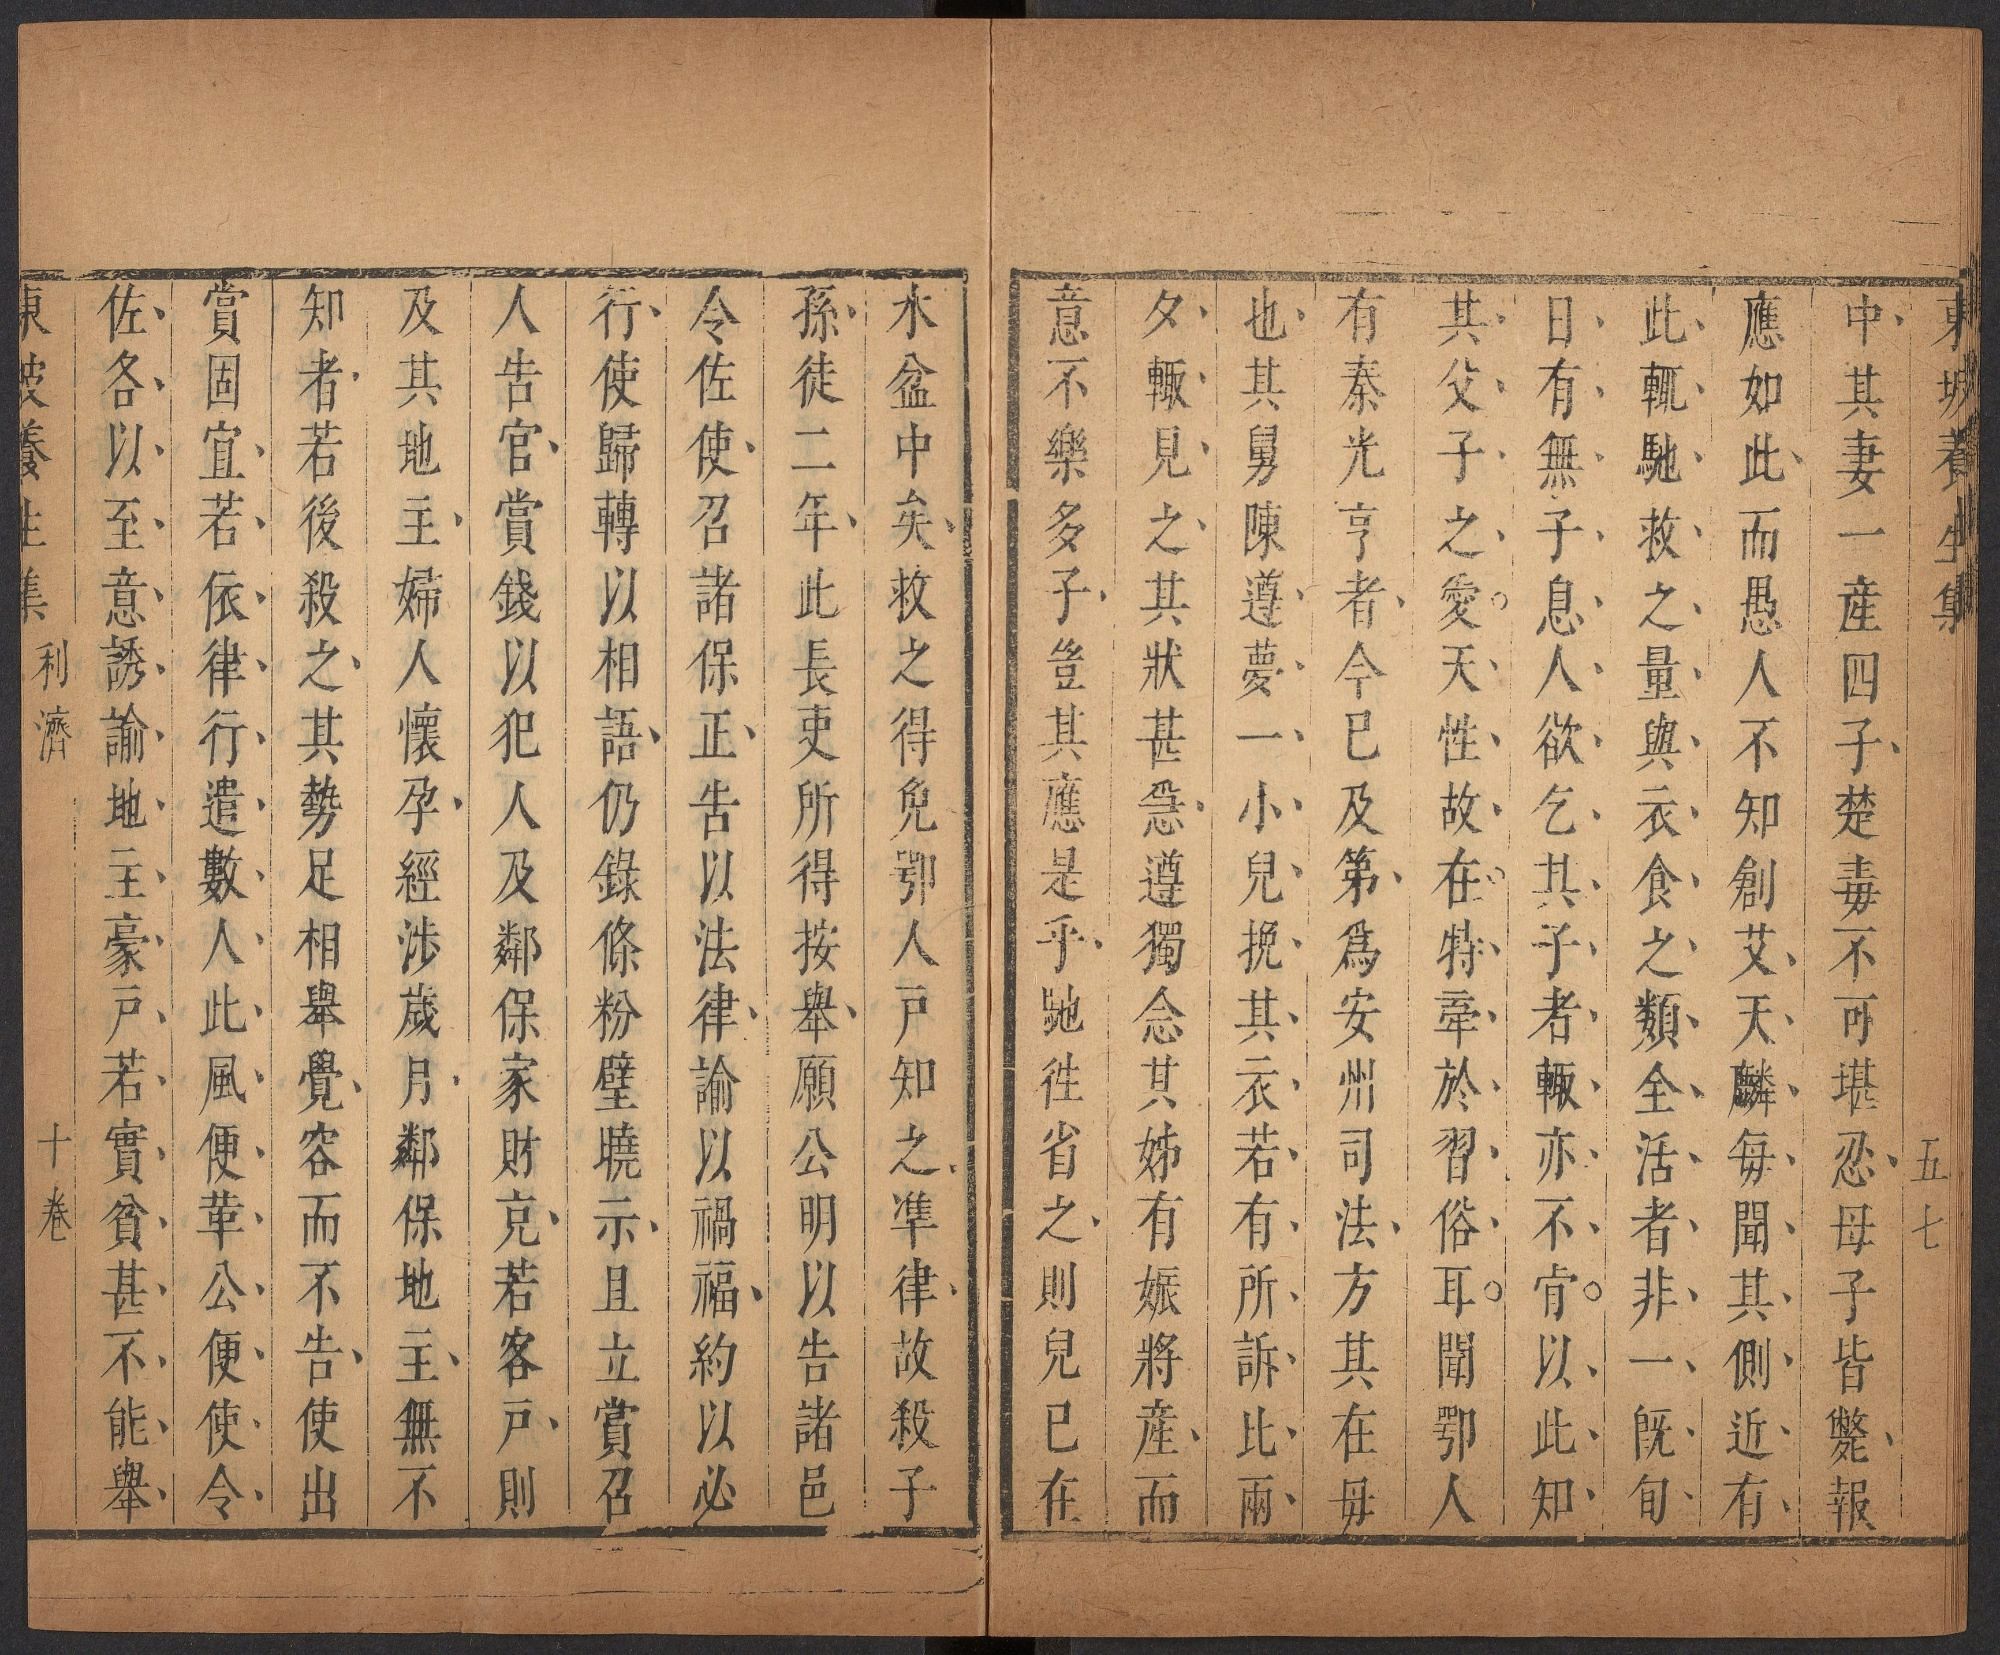 東坡養生集
五七
中其妻一產四子楚毒不可堪忍母子皆斃報
應如此而愚人不知創艾天麟每聞其側近有
此輒馳救之量與衣食之類全活者非一既旬
日有無子息人欲乞其子者輙亦不肯以此知
其父子之愛天性故在特牽於習俗耳聞鄂人
有秦光亨者今已及第爲安州司法方其在母
也其舅陳遵夢一小兒挽其衣若有所訴比兩
夕輙見之其狀甚急遵獨念其姊有娠將產而
意不樂多子豈其應是乎馳徃省之則兒已在
水盆中矣救之得免鄂人戸知之準律故殺子
孫徒二年此長吏所得按舉願公明以告諸邑
令佐使召諸保正告以法律諭以禍福約以必
行使歸轉以相語仍錄條粉壁曉示且立賞召
人告官賞錢以犯人及鄰保家財充若客戸則
及其地主婦人懷孕經涉歲月鄰保地主無不
知者若後殺之其勢足相舉覺容而不告使出
賞固宜若依律行遣數人此風便革公便使令
佐各以至意誘諭地主豪戸若實貧甚不能舉
東坡養生集 利濟 十卷